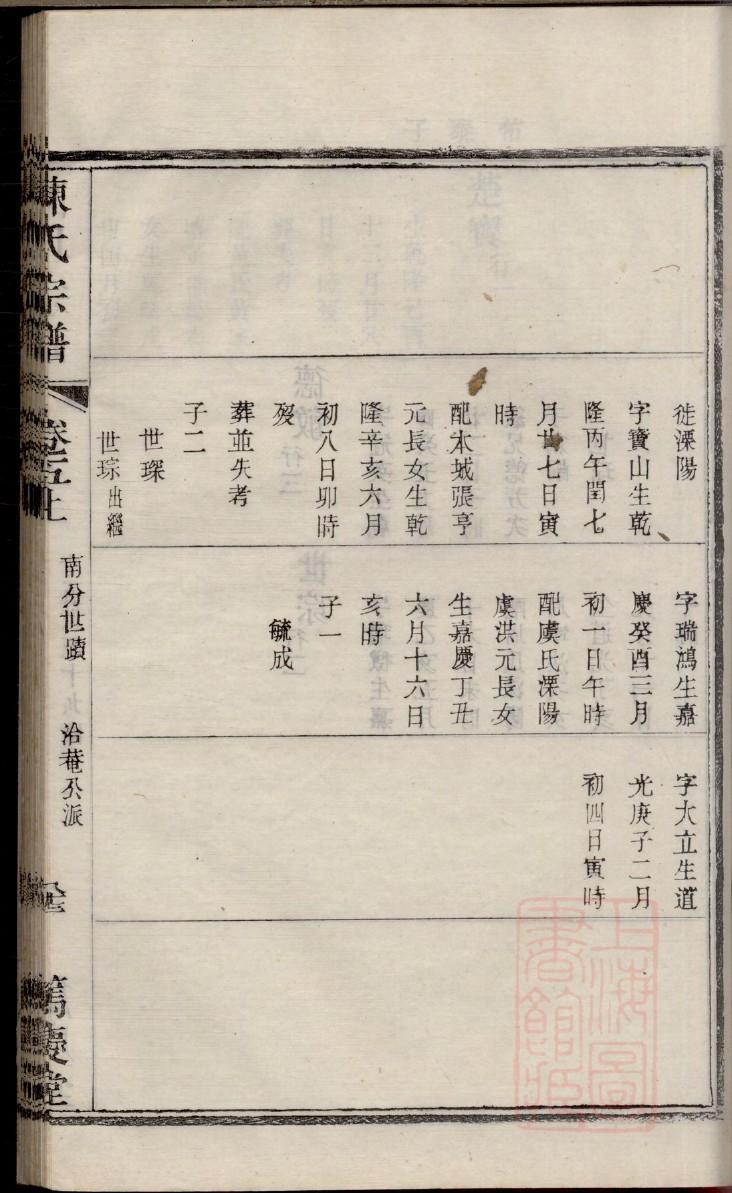 徙溧陽
字寶山生乾
隆丙午閏七
月廿七日寅
時
配本城張亨
元長女生乾
隆辛亥六月
初八日卯時
歿
葬並失考
子二
世琛
世琮出繼
字瑞鴻生嘉
慶癸酉三月
初一日午時
配虞氏溧陽
虞洪元長女
生嘉慶丁丑
六月十六日
亥時
子一
毓成
字大立生道
光庚子二月
初四日寅時
陳氏宗譜
卷五上
南分世蹟十九
洽菴公派
篤慶堂
上海圖
書館藏